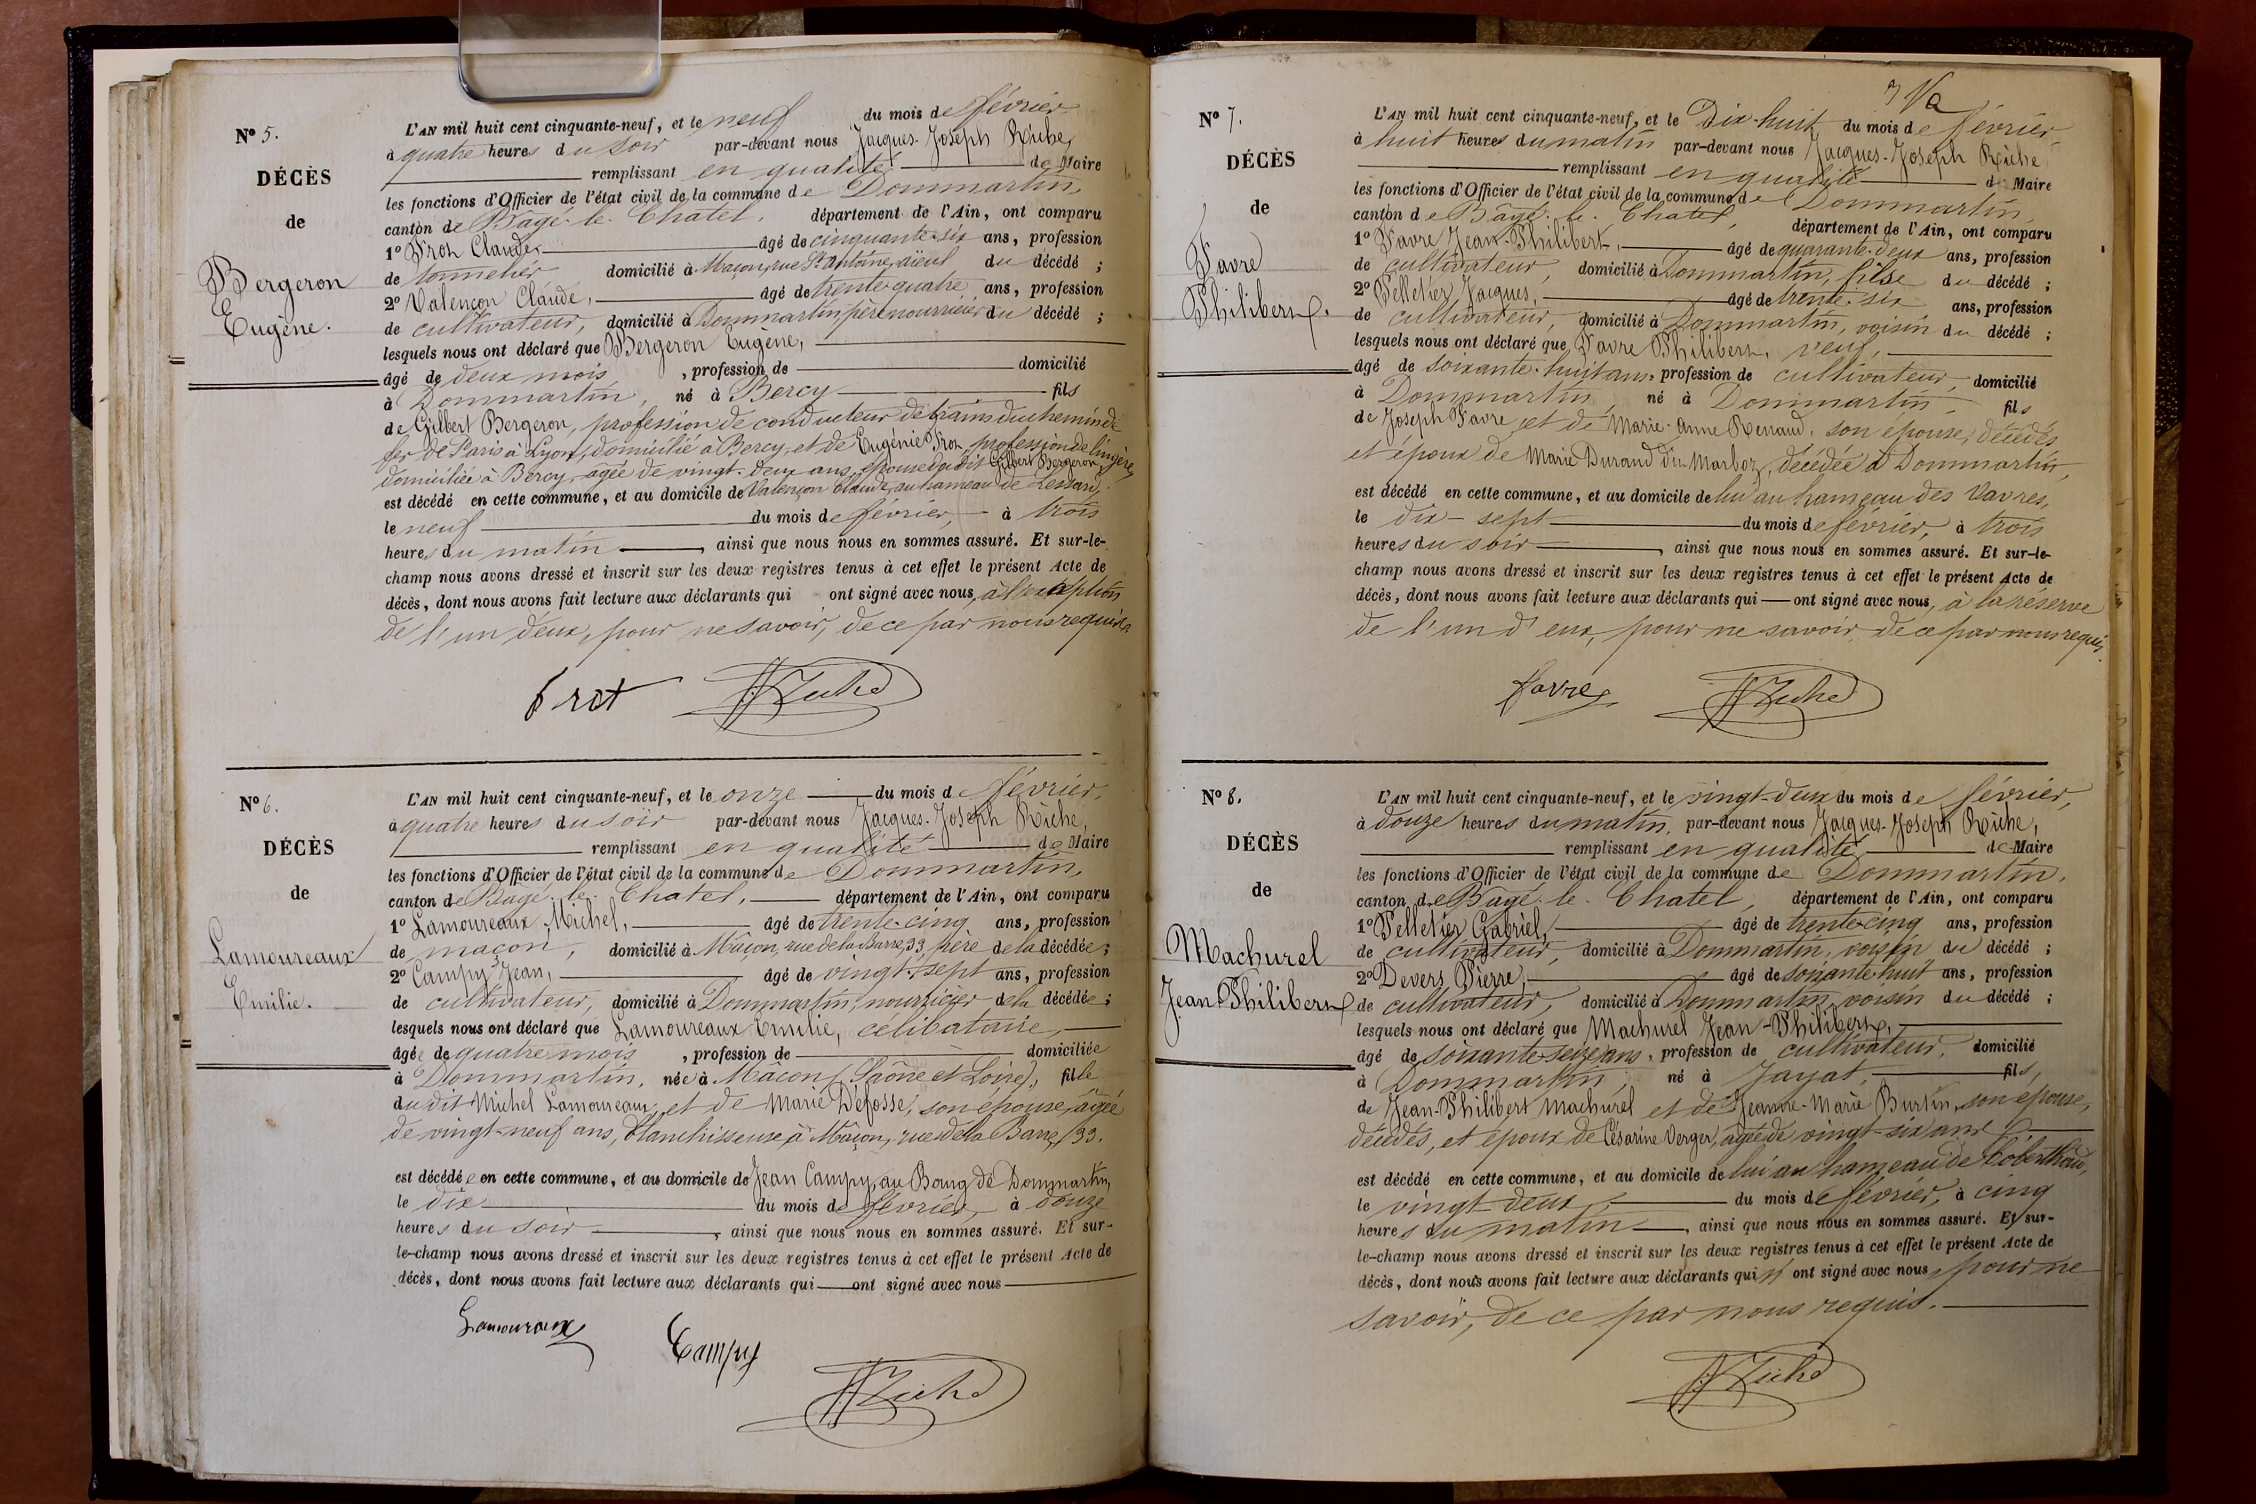 N° 5.
DÉCÈS
de
Bergeron
Eugène.
L'AN mil huit cent cinquante-neuf, et le neuf du mois de février
à quatre heures du soir par-devant nous Jacques-Joseph Riche,
remplissant en qualité de Maire
les fonctions d'Officier de l'état civil de la commune de Dommartin,
canton de Bâgé-le-Chatel, département de l'Ain, ont comparu
1° Claude, âgé de cinquante-six ans, profession
de tonnelier domicilié à Macon, rue St Antoine, aïeul du décédé ;
2° Valençon Claude, âgé de trente-quatre ans, profession
de cultivateur, domicilié à Dommartin, père nourricier du décédé ;
lesquels nous ont déclaré que Bergeron Eugène,
âgé de deux mois, profession de domicilié
à Dommartin, né à Bercy fils
de Gilbert Bergeron, profession de conducteur de trains du chemin de
fer de Paris à Lyon, domicilié à Bercy, et de Eugénie profession de lingère,
domiciliée à Bercy, âgée de vingt-deux ans, épouse du dit Gilbert Bergeron,
est décédé en cette commune, et au domicile de Valençon Claude, au hameau de
le neuf du mois de février, à trois
heures du matin, ainsi que nous nous en sommes assuré. Et sur-le-
champ nous avons dressé et inscrit sur les deux registres tenus à cet effet le présent Acte de
décès, dont nous avons fait lecture aux déclarants qui ont signé avec nous, à l'exception
de l'un d'eux, pour ne savoir, de ce par nous requis.
N° 6.
DÉCÈS
de
Lamoureaux
Emilie.
L'AN mil huit cent cinquante-neuf, et le onze du mois de février,
à quatre heures du soir par-devant nous Jacques-Joseph Riche,
remplissant en qualité de Maire
les fonctions d'Officier de l'état civil de la commune de Dommartin,
canton de Bâgé-le-Chatel, département de l'Ain, ont comparu
1° Lamoureaux Michel, âgé de trente-cinq ans, profession
de maçon, domicilié à Mâcon, rue de la Barre, 33, père de la décédée ;
2° Campy Jean, âgé de vingt-sept ans, profession
de cultivateur, domicilié à Dommartin, nourricier de la décédée ;
lesquels nous ont déclaré que Lamoureaux Emilie, célibataire,
âgée de quatre mois, profession de domiciliée
à Dommartin, née à Mâcon (Saône et Loire), fille
du dit Michel Lamoureaux, et de Marie Defosse, son épouse, âgée
de vingt-neuf ans, blanchisseuse à Mâcon, rue de la Barre, 33.
est décédée en cette commune, et au domicile de Jean Campy, au Bourg de Dommartin,
le dix du mois de février, à douze
heures du soir, ainsi que nous nous en sommes assuré. Et sur-
le-champ nous avons dressé et inscrit sur les deux registres tenus à cet effet le présent Acte de
décès, dont nous avons fait lecture aux déclarants qui ont signé avec nous
Lamouraux
Campy
N° 7.
DÉCÈS
de
Favre
Philibert.
L'AN mil huit cent cinquante-neuf, et le Dix-huit du mois de février
à huit heures du matin par-devant nous Jacques-Joseph Riche
remplissant en qualité de Maire
les fonctions d'Officier de l'état civil de la commune de Dommartin,
canton de Bâgé-le-Chatel, département de l'Ain, ont comparu
1° Favre Jean-Philibert, âgé de quarante-deux ans, profession
de cultivateur, domicilié à Dommartin, fils du décédé ;
2° Pelletier Jacques, âgé de trente-six ans, profession
de cultivateur, domicilié à Dommartin, voisin du décédé ;
lesquels nous ont déclaré que Favre Philibert, veuf,
âgé de soixante-huit ans, profession de cultivateur, domicilié
à Dommartin, né à Dommartin, fils
de Joseph Favre, et de Marie-Anne Renaud, son épouse, décédés
et époux de Marie Durand décédée à Dommartin,
est décédé en cette commune, et au domicile de lui au hameau des Vavres,
le dix-sept du mois de février, à trois
heures du soir, ainsi que nous nous en sommes assuré. Et sur-le-
champ nous avons dressé et inscrit sur les deux registres tenus à cet effet le présent Acte de
décès, dont nous avons fait lecture aux déclarants qui ont signé avec nous, à la réserve
de l'un d'eux, pour ne savoir, de ce par nous requis.
favre
N° 8.
DÉCÈS
de
Machurel
Jean-Philibert
L'AN mil huit cent cinquante-neuf, et le vingt-deux du mois de février,
à douze heures du matin, par-devant nous Jacques-Joseph Riche,
remplissant en qualité de Maire
les fonctions d'Officier de l'état civil de la commune de Dommartin,
canton de Bâgé-le-Chatel, département de l'Ain, ont comparu
1° Pelletier Gabriel, âgé de trente-cinq ans, profession
de cultivateur, domicilié à Dommartin, voisin du décédé ;
2° Devers Pierre, âgé de soixante-huit ans, profession
de cultivateur, domicilié à Dommartin, voisin du décédé ;
lesquels nous ont déclaré que Machurel Jean-Philibert,
âgé de soixante-seize ans, profession de cultivateur, domicilié
à Dommartin, né à Jayat, fils,
de Jean-Philibert Machurel et de Jeanne-Marie Burtin, son épouse,
décédés, et époux de Césarine Verger, âgée de vingt-six ans
est décédé en cette commune, et au domicile de lui au hameau de
le vingt-deux, du mois de février, à cinq
heures du matin, ainsi que nous nous en sommes assuré. Et sur-
le-champ nous avons dressé et inscrit sur les deux registres tenus à cet effet le présent Acte de
décès, dont nous avons fait lecture aux déclarants qui n'ont signé avec nous, pour ne
savoir, de ce par nous requis.